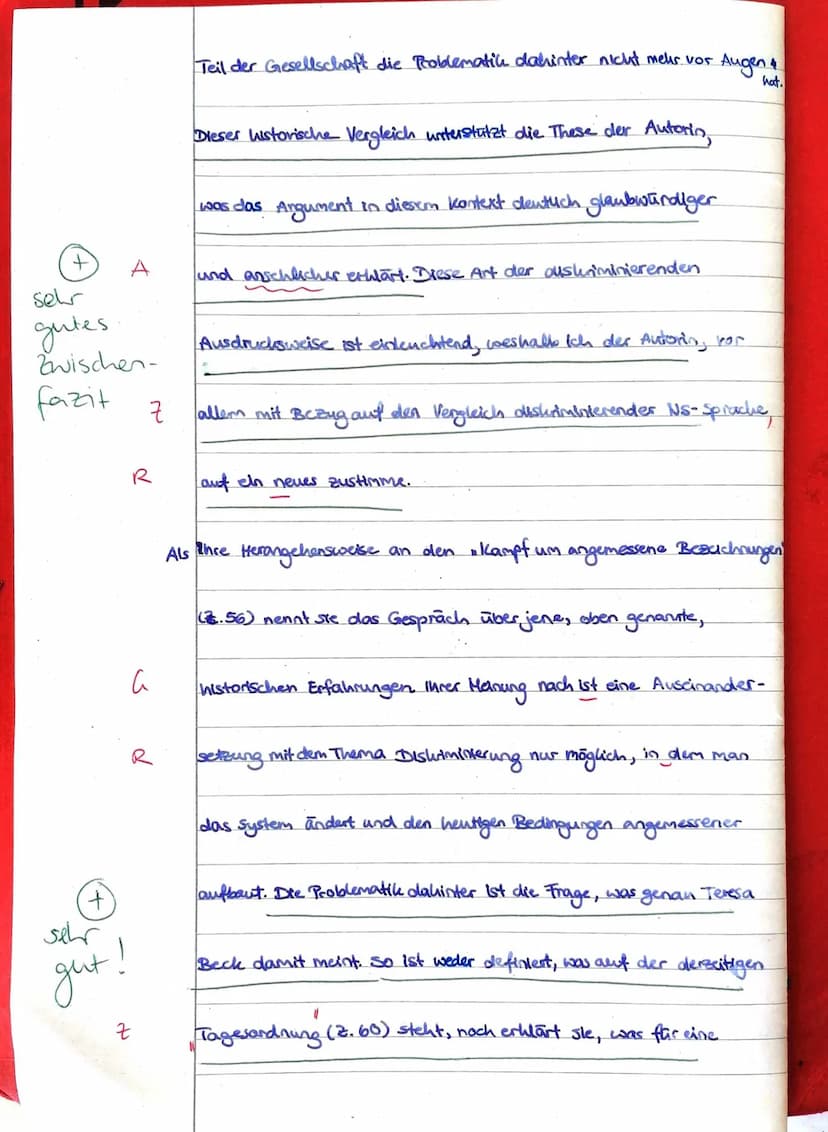 Teil der Gesellschaft die Problematik dahinter nicht mehr vor Augen
hat.
Dieser historische Vergleich unterstützt die These der Autorin,
was das Argument in diesem Kontext deutlich glaubwürdiger
+ A und anschlicher erklärt. Diese Art der diskriminierenden
sehr
gutes
Zwischen-
fazit
Ausdrucksweise ist einleuchtend, weshalb ich der Autorin, vor
Z allem mit Bezug auf den Vergleich diskriminierender NS-Sprache,
R auf ein neues zustimme.
Als ihre Herangehensweise an den "Kampf um angemessene Bezeichnungen"
(Z.56) nennt sie das Gespräch über jene, oben genannte,
G historischen Erfahrungen. Ihrer Meinung nach ist eine Auseinander-
R setzung mit dem Thema Diskriminierung nur möglich, in dem man
das System ändert und den heutigen Bedingungen angemessener
aufbaut. Die Problematik dahinter ist die Frage, was genau Teresa
+
sehr
gut!
Beck damit meint. So ist weder definiert, was auf der derzeitigen
Z "Tagesordnung" (Z.60) steht, noch erklärt sie, was für eine